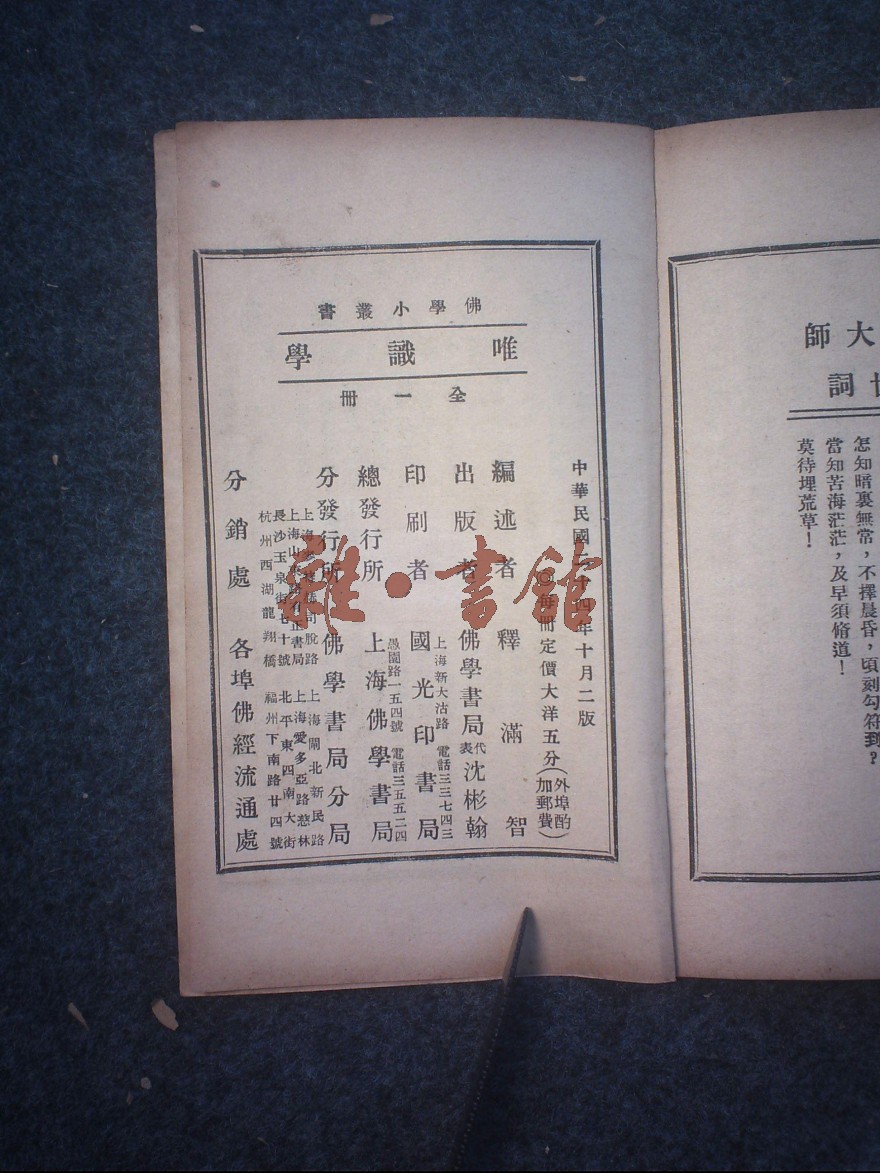 佛學小叢書
唯識學
全一冊
中華民國二十四年十月二版
每冊定價大洋五分（外埠酌加郵費）
編述者 釋滿智
出版者 佛學書局 代表 沈彬翰
上海新大沽路 電話三三七四三
印刷者 國光印書局
愚園路一五四號 電話三五五二四
總發行所 上海佛學書局
分發行所 佛學書局分局
上海 司脫路 上海閘北新民路
上海山 書局 上海愛多亞路慈林
長沙玉泉街七十號 北平東四南大街
杭州西湖龍翔橋 福州下南路廿四號
分銷處 各埠佛經流通處
大師
詞
怎知暗裏無常，不擇晨昏，頃刻勾符到？
當知苦海茫茫，及早須脩道！
莫待埋荒草！
雜·書館